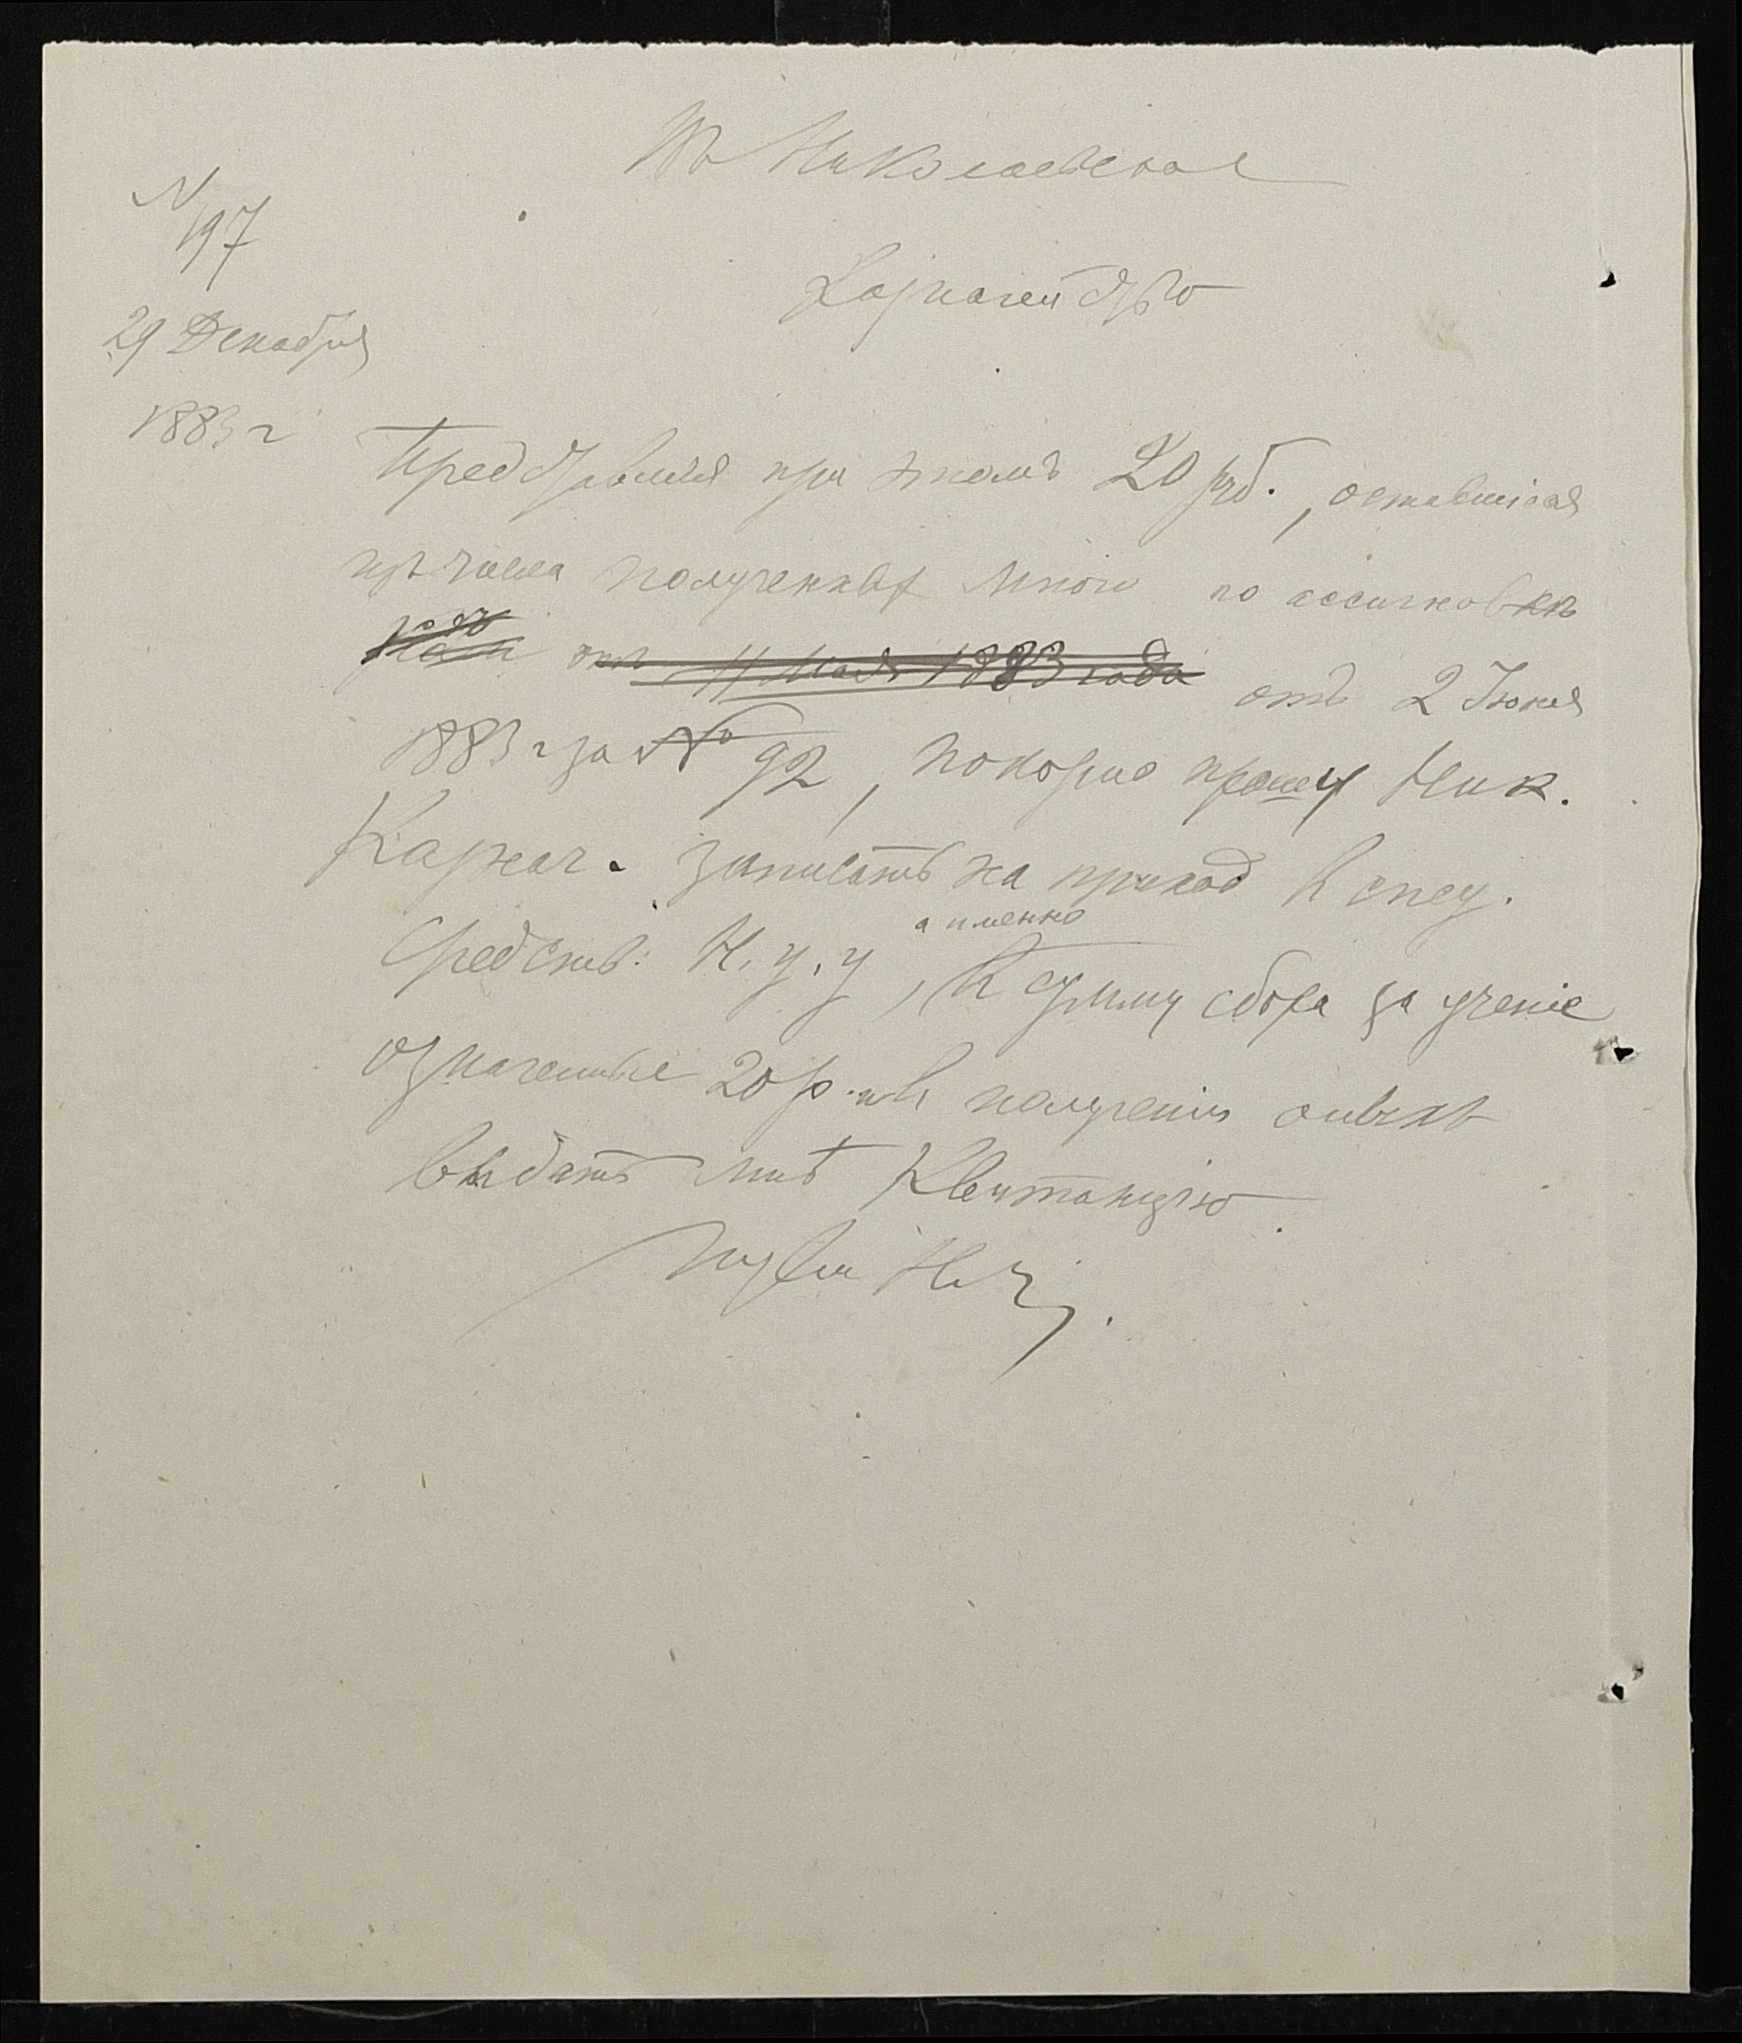 Въ Николаевское
№ 197
Казначейство
29 Декабря
1883 г
Представляя при этомъ 20 руб., оставшіеся
изъ числа полученныхъ мною по ассигновкѣ
отъ 11 Мая 1883 года отъ 2 Іюня
1883 г за № 92, покорно прошу Ник.
Казнач. записать на приход в спец.
средств: Н. у. у, а именно в сумму сбора за ученіе
означенные 20 р. и въ полученіи оныхъ
выдать мнѣ квитанцію